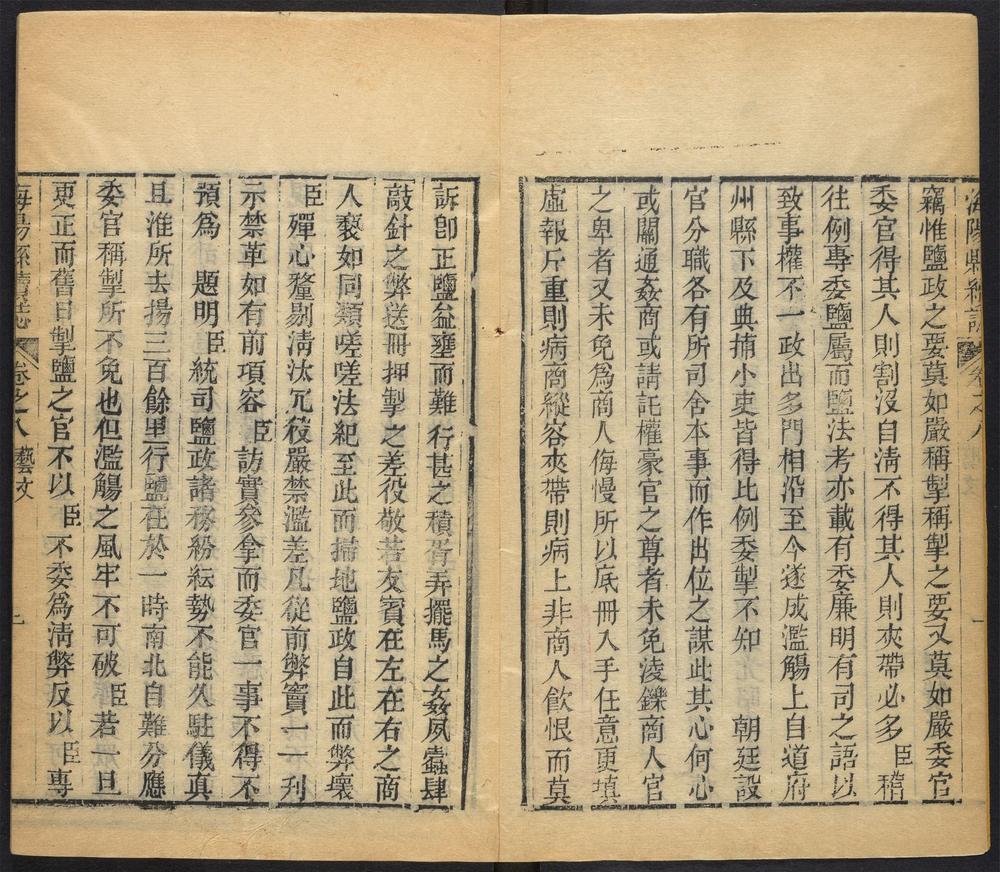 海陽縣續誌 卷之八
竊惟鹽政之要莫如嚴稱掣稱掣之要又莫如嚴委官
委官得其人則割沒自淸不得其人則夾帶必多臣稽
往例專委鹽屬而鹽法考亦載有委廉明有司之語以
致事權不一政出多門相沿至今遂成濫觴上自道府
州縣下及典捕小吏皆得比例委掣不知 朝廷設
官分職各有所司舍本事而作出位之謀此其心何心
或關通姦商或請託權豪官之尊者未免淩鑠商人官
之卑者又未免為商人侮慢所以底冊入手任意更填
虛報斤重則病商縱容夾帶則病上非商人飲恨而莫
訴卽正鹽益壅而難行甚之積胥弄擺馬之姦夙蠹肆
敲針之弊送冊押掣之差役敬若友賓在左在右之商
人褻如同類嗟嗟法紀至此而掃地鹽政自此而弊壞
臣殫心釐剔淸汰冗役嚴禁濫差凡從前弊竇一一刋
示禁革如有前項容臣訪實參拿而委官一事不得不
預為 題明臣統司鹽政諸務紛紜勢不能久駐儀真
且淮所去揚三百餘里行鹽在於一時南北自難分應
委官稱掣所不免也但濫觴之風牢不可破臣若一旦
更正而舊日掣鹽之官不以臣不委為淸弊反以臣專
海陽縣續誌 卷之八 藝文